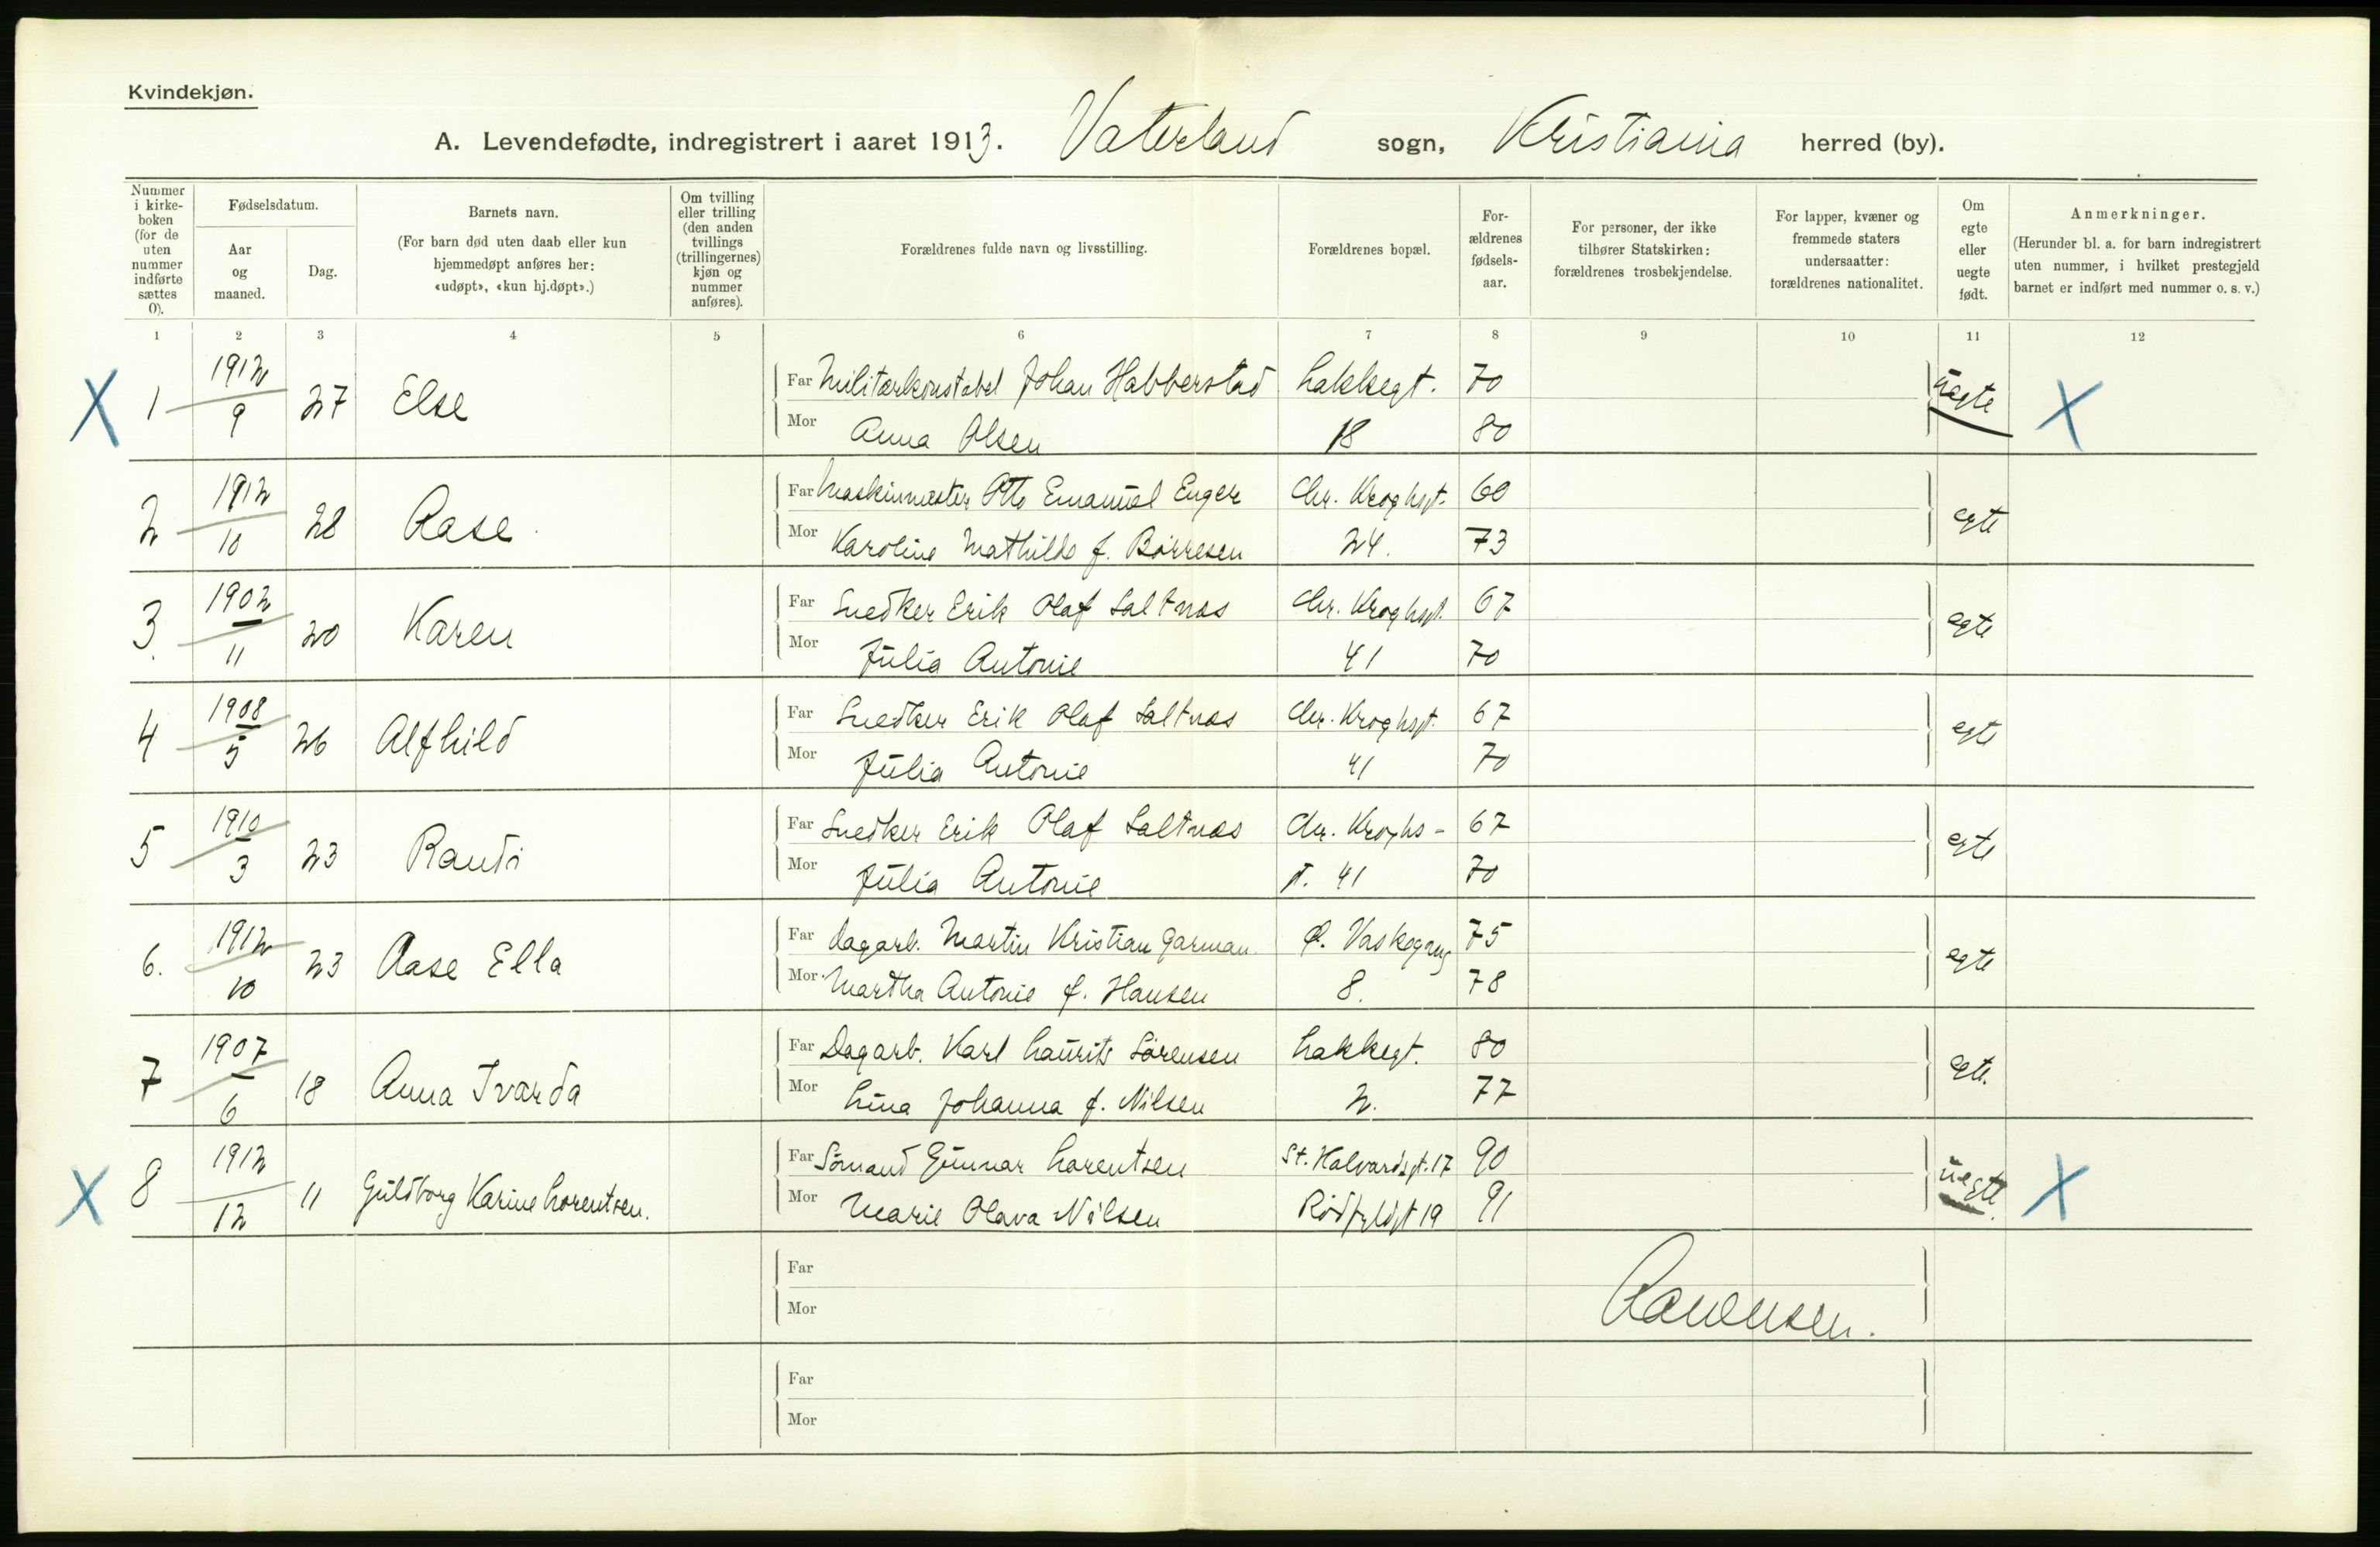 Kvindekjøn.
A. Levendefødte, indregistrert i aaret 1913. Vaterland sogn, Kristiania herred (by).
Nummer i kirkeboken (for de uten nummer indførte sættes 0).
Fødselsdatum.
Aar og maaned.
Dag.
Barnets navn.
(For barn død uten daab eller kun hjemmedøpt anføres her: «udøpt», «kun hj.døpt».)
Om tvilling eller trilling (den anden tvillings (trillingernes) kjøn og nummer anføres).
Forældrenes fulde navn og livsstilling.
Forældrenes bopæl.
For-ældrenes fødsels-aar.
For personer, der ikke tilhører Statskirken: forældrenes trosbekjendelse.
For lapper, kvæner og fremmede staters undersaatter: forældrenes nationalitet.
Om egte eller uegte født.
Anmerkninger.
(Herunder bl. a. for barn indregistrert uten nummer, i hvilket prestegjeld barnet er indført med nummer o. s. v.)
1 2 3 4 5 6 7 8 9 10 11 12
X 1 1912 9 27 Else Far Militærkonstabel Johan Habberstad Lakkegt. 70 uegte X
Mor Anna Olsen 18 80
2 1912 10 28 Aase Far Maskinmester Otto Emanuel Enger Chr. Kroghsgt. 60 egte
Mor Karoline Mathilde f. Börresen 24. 73
3. 1902 11 20 Karen Far Snedker Erik Olaf Saltnes Chr. Kroghsgt. 67 egte
Mor Julia Antonie 41 70
4 1908 5 26 Alfhild Far Snedker Erik Olaf Saltnes Chr. Kroghsgt. 67 egte
Mor Julia Antonie 41 70
5 1910 3 23 Randi Far Snedker Erik Olaf Saltnes Chr. Kroghs- 67 egte
Mor Julia Antonie gt. 41 70
6. 1912 10 23 Aase Ella Far Dagarb. Martin Kristian Garman Ø. Vaskegang 75 egte
Mor Martha Antonie f. Hansen 8. 78
7 1907 6 18 Anna Ivarda Far Dagarb. Karl Laurits Sörensen Lakkegt. 80 egte.
Mor Lina Johanna f. Nilsen 2. 77
X 8 1912 12 11 Guldborg Karine Lorentsen. Far Sömand Gunnar Lorentsen St. Halvardsgt. 17 90 uegte. X
Mor Marie Olava Nilsen Rödfyldgt 19 91
Far
Mor
Far
Mor